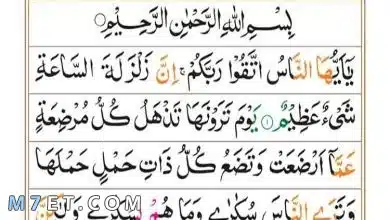 بِسْمِ اللهِ الرَّحْمٰنِ الرَّحِيْمِ
يٰۤاَيُّهَا النَّاسُ اتَّقُوْا رَبَّكُمْ ۚ اِنَّ زَلْزَلَةَ السَّاعَةِ
شَيْءٌ عَظِيْمٌ ۝۱ يَوْمَ تَرَوْنَهَا تَذْهَلُ كُلُّ مُرْضِعَةٍ
عَمَّاۤ اَرْضَعَتْ وَتَضَعُ كُلُّ ذَاتِ حَمْلٍ حَمْلَهَا
وَتَرَى النَّاسَ سُكٰرٰى وَمَا هُمْ بِسُكٰرٰى وَلٰكِنَّ
M7ET.COM